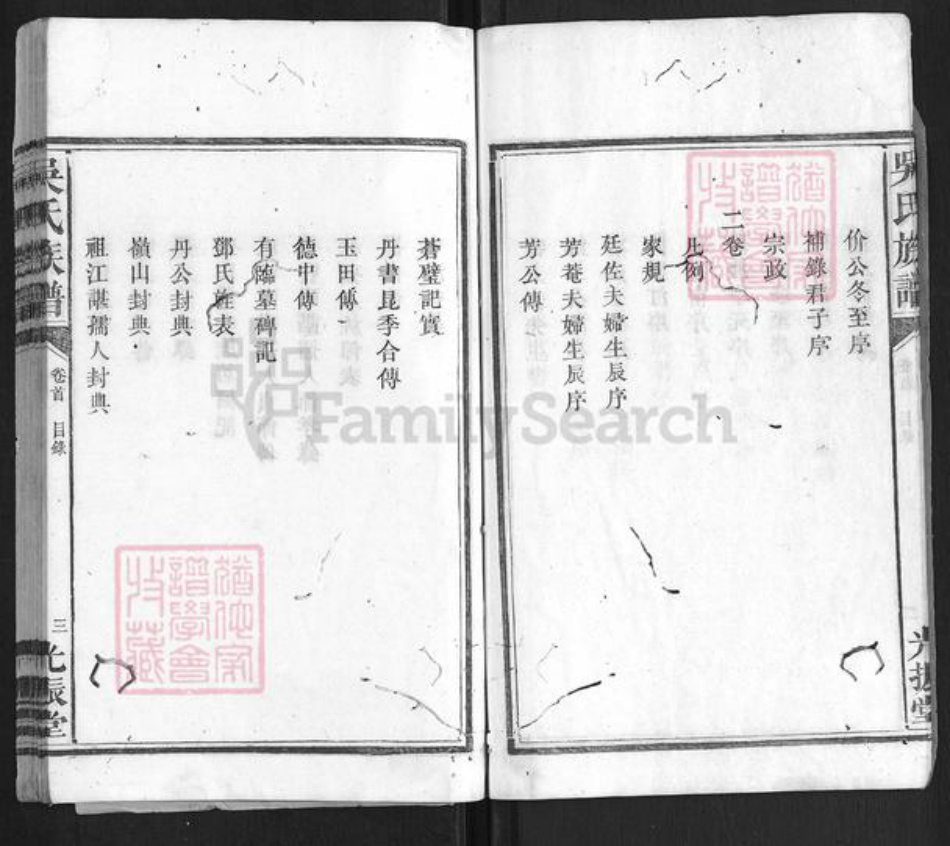 吳氏族譜
光振堂
价公冬至序
補錄君子序
宗政
二卷
凡例
家規
廷佐夫婦生辰序
芳菴夫婦生辰序
芳公傳
蒼璧記實
丹書昆季合傳
玉田傳
德中傳
有臨墓碑記
鄧氏旌表
丹公封典
嶺山封典
祖江諶孺人封典
吳氏族譜
卷首 目錄
三
光振堂
猶他家
譜學會
收藏
猶他家
譜學會
收藏
FamilySearch